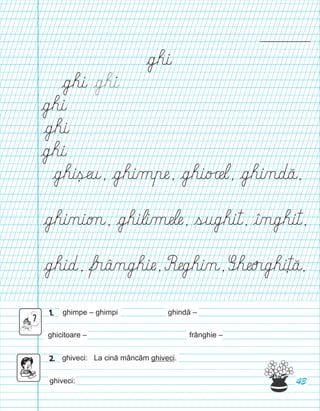 ghi
ghi ghi
ghi
ghi
ghi
ghișeu, ghimpe, ghiocel, ghindă,
ghinion, ghilimele, sughit, înghit,
ghid, frânghie, Reghin, Gheorghiță,
1. ghimpe – ghimpi ghindă –
ghicitoare – frânghie –
2. ghiveci: La cină mâncăm ghiveci.
ghiveci:
43